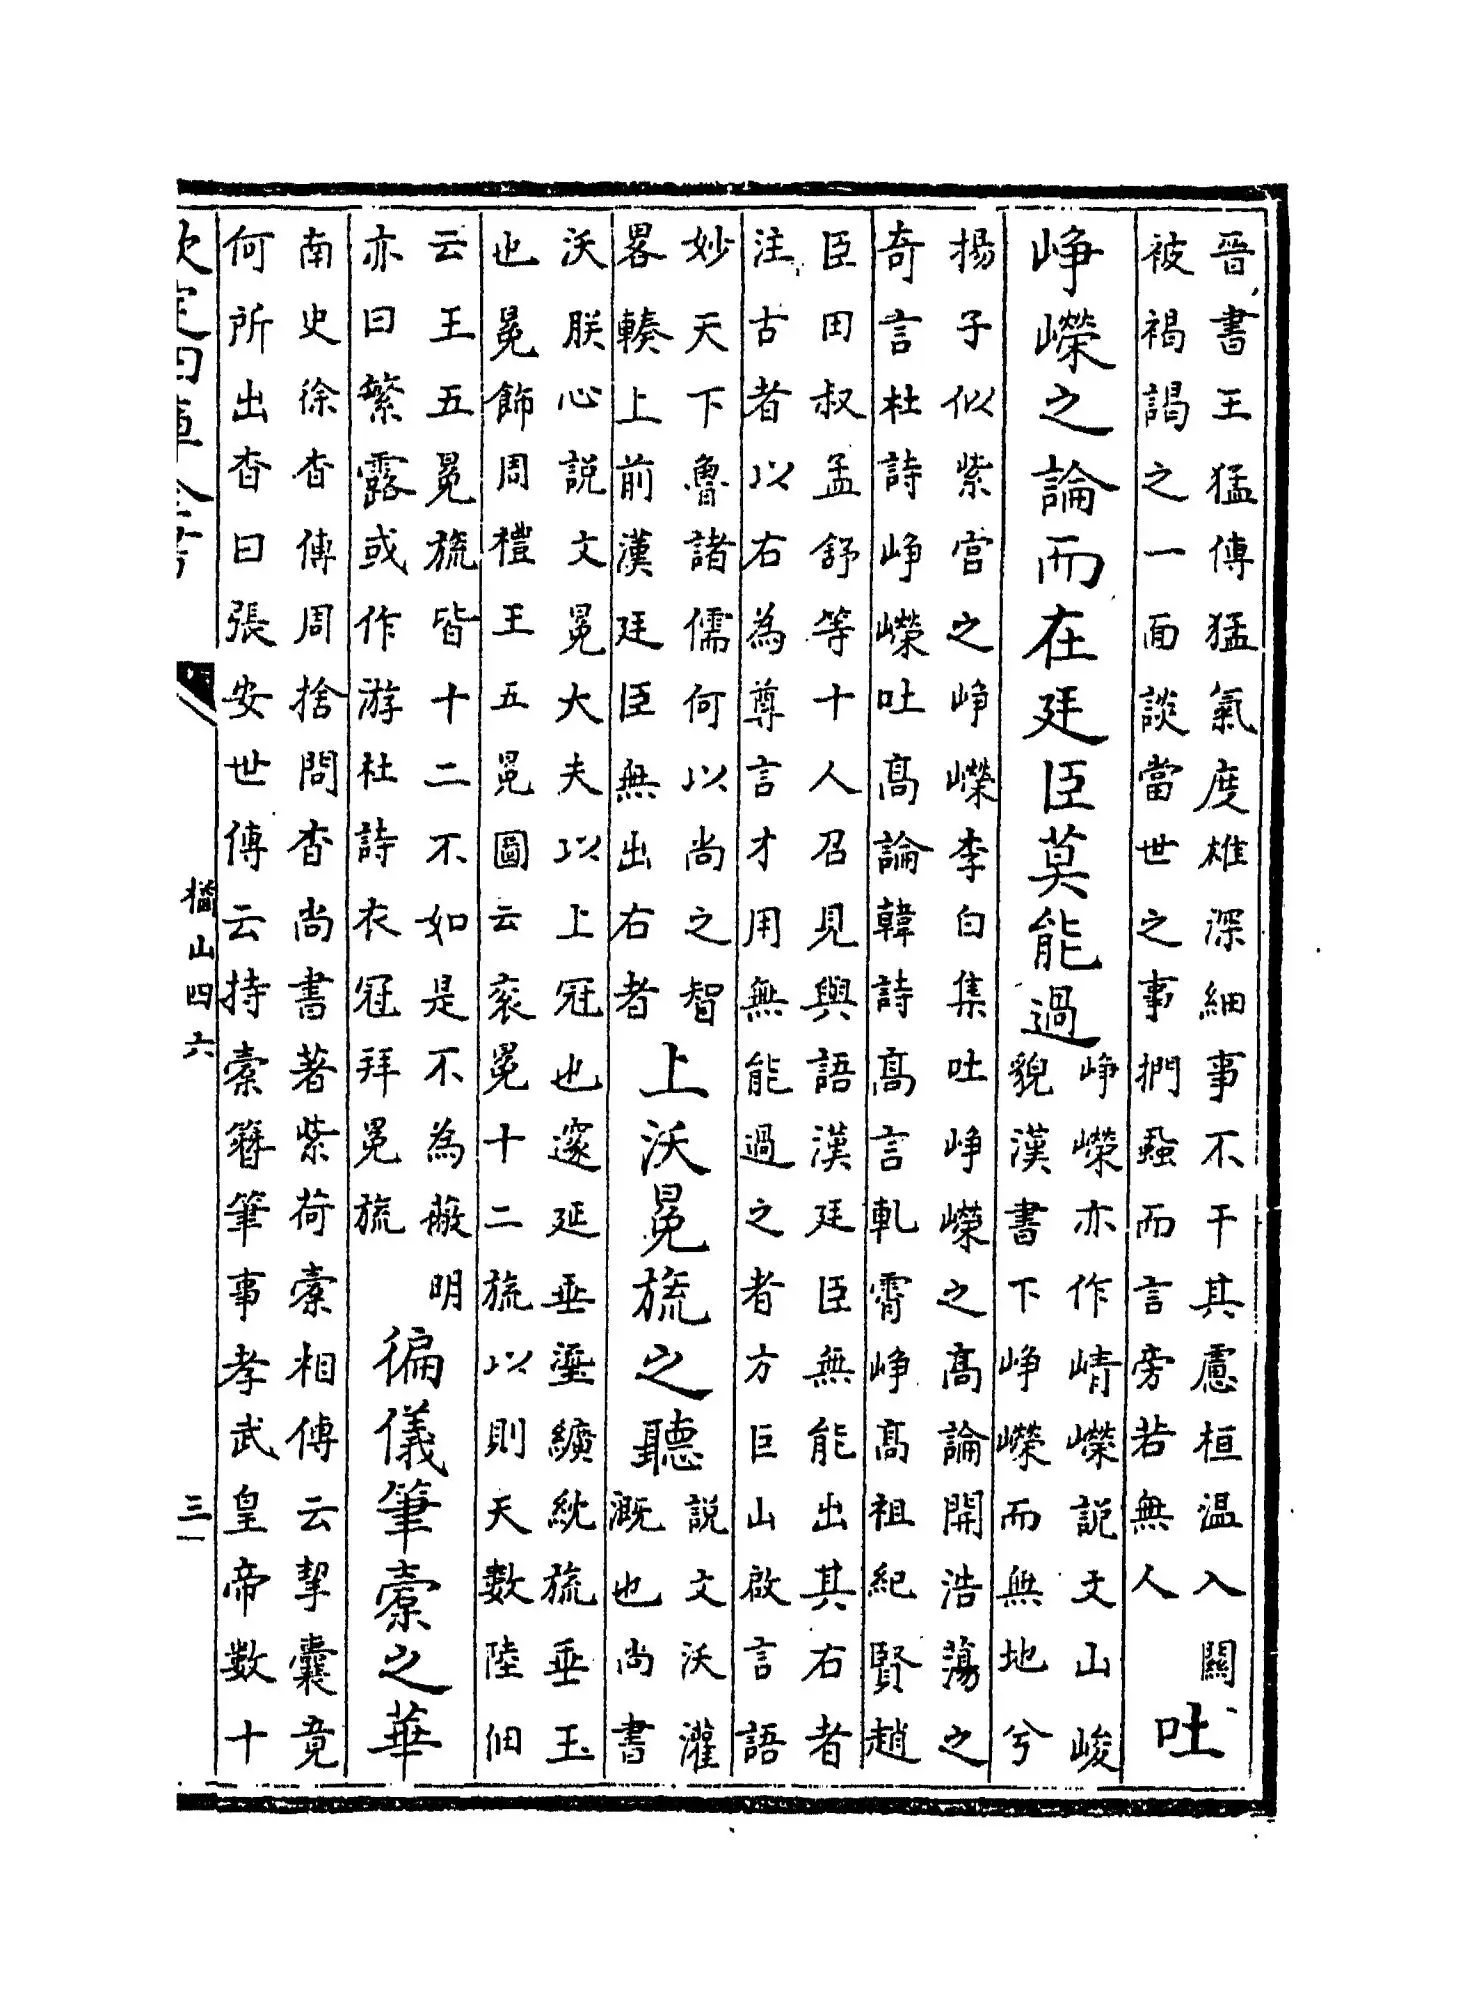 晉書王猛傳猛氣度雄深細事不干其慮桓温入關
被褐謁之一面談當世之事捫蝨而言旁若無人
吐
峥嶸之論而在廷臣莫能過
峥嶸亦作崝嶸説文山峻
貌漢書下峥嶸而無地兮
揚子似紫宫之峥嶸李白集吐峥嶸之髙論開浩蕩之
奇言杜詩峥嶸吐髙論韓詩髙言軋霄峥髙祖紀賢趙
臣田叔孟舒等十人召見與語漢廷臣無能出其右者
注古者以右為尊言才用無能過之者方巨山啟言語
妙天下魯諸儒何以尚之智
畧輳上前漢廷臣無出右者
上沃冕旒之聽
説文沃灌
溉也尚書
沃朕心説文冕大夫以上冠也邃延垂瑬纊紞旒垂玉
也冕飾周禮王五冕冕圖云衮冕十二旒以則天數陸佃
云王五冕旒皆十二不如是不為蔽明
亦曰繁露或作游杜詩衣冠拜冕旒
徧儀筆橐之華
南史徐杳傳周捨問杳尚書著紫荷橐相傳云挈囊竟
何所出杳曰張安世傳云持橐簪筆事孝武皇帝數十
欽定四庫全書
橘山四六
三